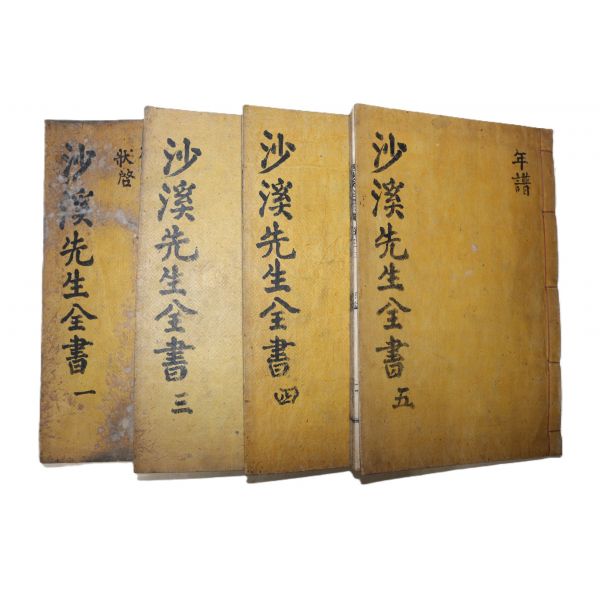 年譜
沙溪先生全書 五
沙溪先生全書 四
沙溪先生全書 三
狀啓
沙溪先生全書 一